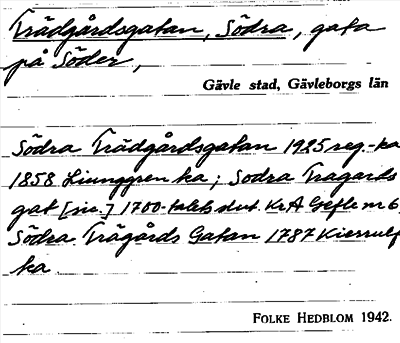 Trädgårdsgatan, Södra, gata
på Söder,
Gävle stad, Gävleborgs län
Södra Trädgårdsgatan 1925 reg.-ka
1858 Ljunggren ka; Södra Trägårds
gat [sic.] 1700-talets slut. KrA Gefle nr 6
Södra Trägårds Gatan 1787 Kierrulf
ka
FOLKE HEDBLOM 1942.